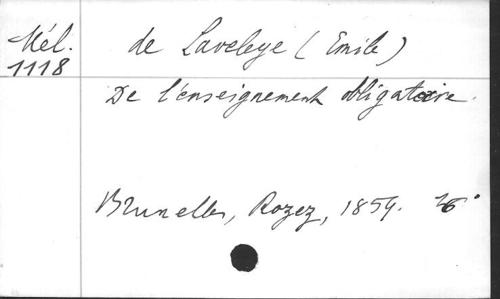 Mél.
1118
de Laveleye (Emile)
De l'enseignement obligatoire.
Bruxelles, Rozez, 1859.